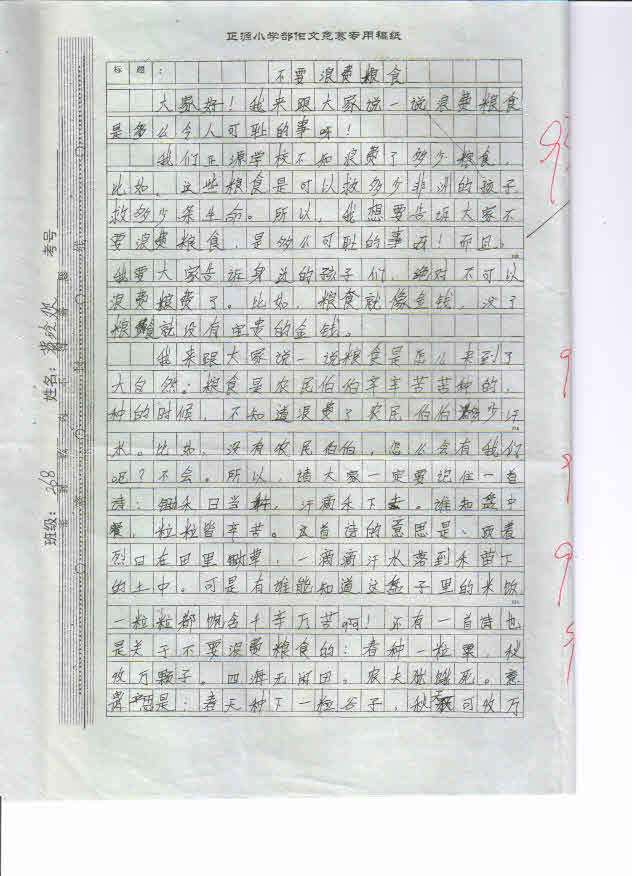 正源小学部作文竞赛专用稿纸
标题：不要浪费粮食
大家好！我来跟大家说一说浪费粮食
是多么令人可耻的事呀！
我们正源学校不知浪费了多少粮食，
比如，这些粮食是可以救多少非洲的孩子
救多少条生命。所以，我想要告诉大家不
要浪费粮食，是多么可耻的事呀！而且。
我要大家告诉身边的孩子们，绝对不可以
浪费粮费了。比如，粮食就像金钱，没了
粮食就没有宝贵的金钱。
我来跟大家说一说粮食是怎么来到了
大自然：粮食是农民伯伯辛辛苦苦种的，
种的时候，不知道浪费了农民伯伯多少汗
水。比如，没有农民伯伯，怎么会有我们
吧？不会。所以，请大家一定要记住一首
诗：锄禾日当，汗滴禾下去。谁知盘中
餐，粒粒皆辛苦。这首诗的意思是：顶着
烈日在田里锄草，一滴滴汗水落到禾苗下
的土中。可是有谁能知道这盘子里的米饭
一粒粒都饱含千辛万苦啊！还有一首诗也
是关于不要浪费粮食的：春种一粒粟，秋
收万颗子。四海无闲田。农夫犹饿死。意
思是：春天种下一粒谷子，秋天可收万
班级：368
姓名：
考号